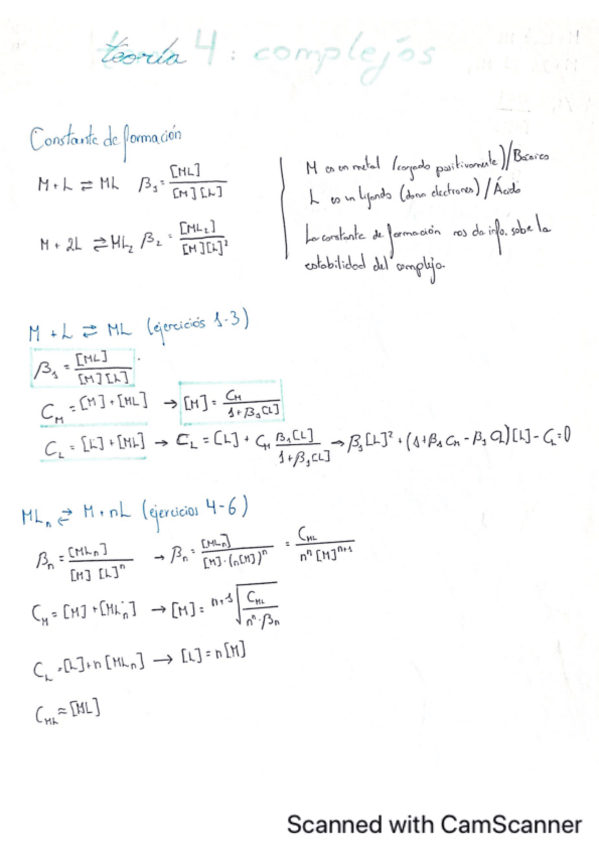 teoría 4: complejos
Constante de formación
M + L ⇌ ML β₁ = [ML] / [M][L]
M + 2L ⇌ ML₂ β₂ = [ML₂] / [M][L]²
M es un metal (cargado positivamente) / Básico
L es un ligando (dona electrones) / Ácido
La constante de formación nos da info. sobre la
estabilidad del complejo.
M + L ⇌ ML (ejercicios 1-3)
β₁ = [ML] / [M][L]
C_M = [M] + [ML] → [M] = C_M / 1+β₁[L]
C_L = [L] + [ML] → C_L = [L] + C_M β₁[L] / 1+β₁[L] → β₁[L]² + (1+β₁C_M - β₁C_L)[L] - C_L = 0
MLₙ ⇌ M + nL (ejercicios 4-6)
βₙ = [MLₙ] / [M][L]ⁿ → βₙ = [MLₙ] / [M]·(n[M])ⁿ = C_ML / nⁿ[M]ⁿ⁺¹
C_M = [M] + [MLₙ] → [M] = ⁿ⁺¹√(C_ML / nⁿ·βₙ)
C_L = [L] + n[MLₙ] → [L] = n[M]
C_ML ≈ [ML]
Scanned with CamScanner